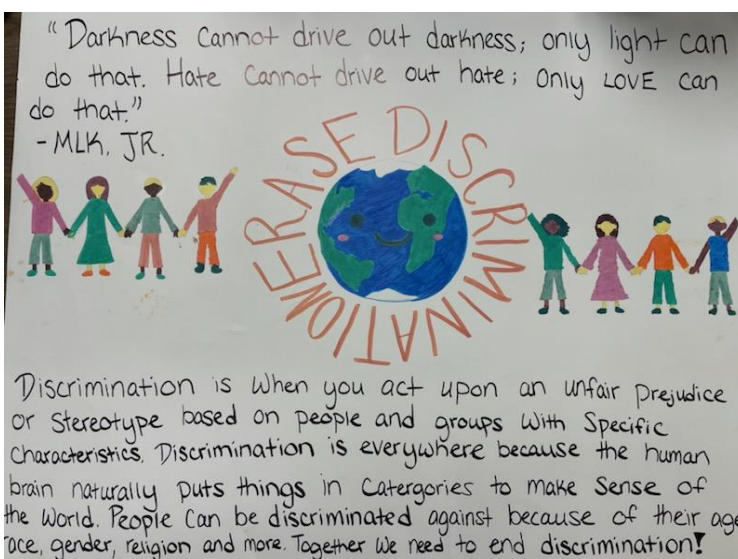 "Darkness Cannot drive out darkness; only light can
do that. Hate Cannot drive out hate; Only LOVE can
do that."
- MLK, JR.
ERASE DISCRIMINATION
Discrimination is when you act upon an unfair Prejudice
or Stereotype based on people and groups with Specific
Characteristics. Discrimination is everywhere because the human
brain naturally puts things in Catergories to make Sense of
the World. People Can be discriminated against because of their age
race, gender, religion and more. Together We need to end discrimination!